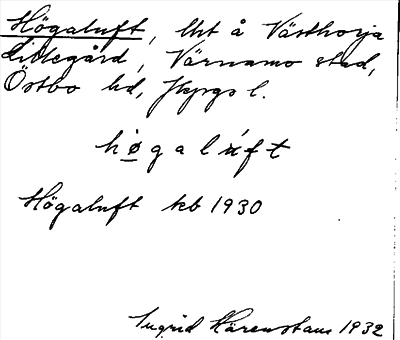 Högaluft, lht å Västhorja
Lillegård, Värnamo stad,
Östbo hd, Jkpgs l.
høgalúft
Högaluft kb 1930
Ingrid Härenstam 1932